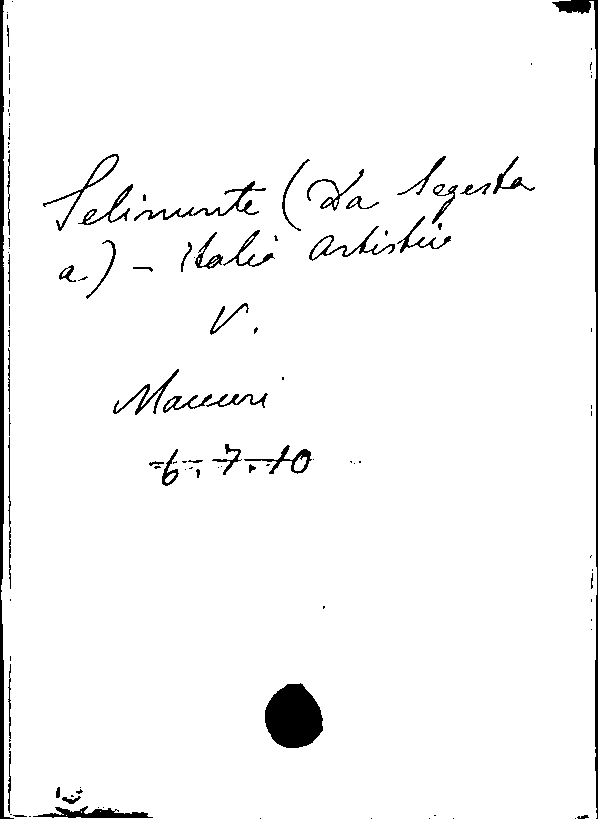 Selinunte (Da Segesta
a) - Italia Artistica
V.
Mauceri
6.7.10